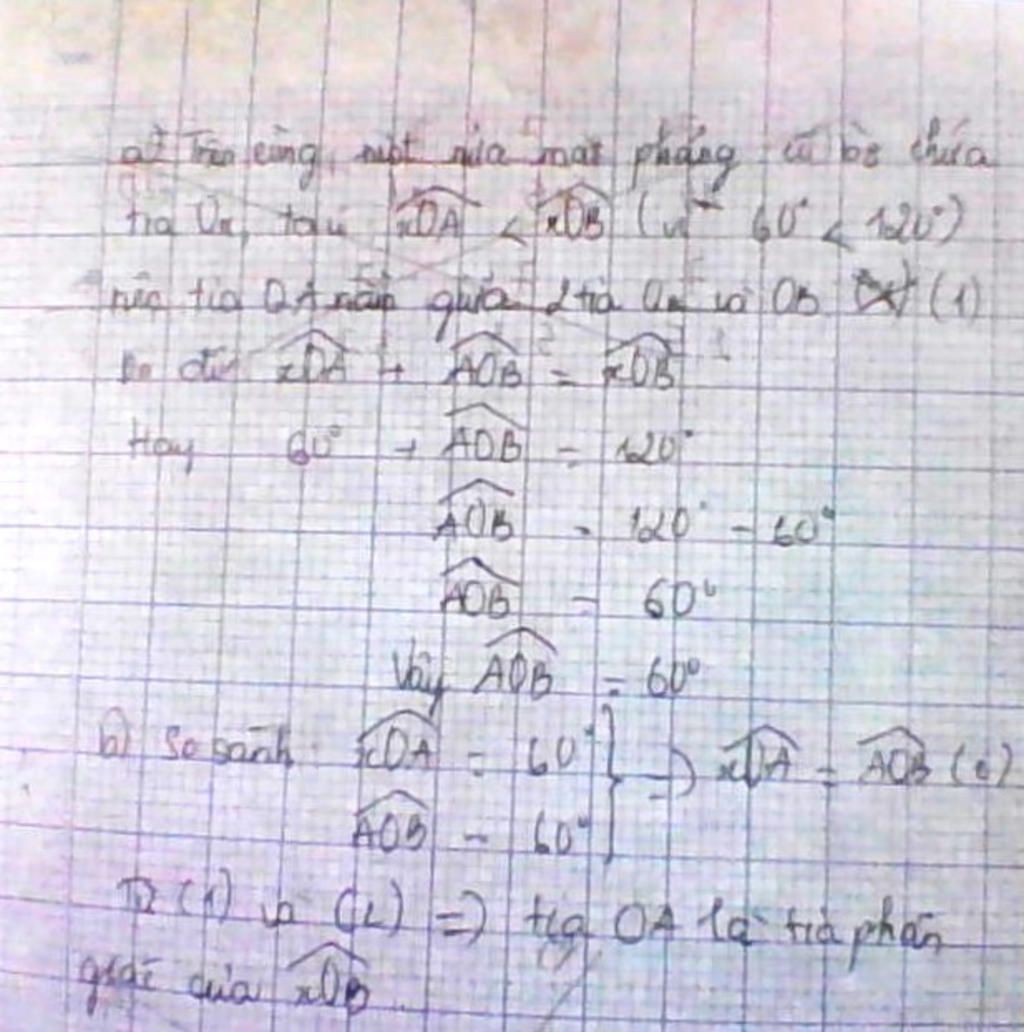 a) Trên cùng một nửa mặt phẳng có bờ chứa
tia Ox, ta có xOA < xOB (vì 60° < 120°)
nên tia OA nằm giữa 2 tia Ox và OB (1)
Do đó xOA + AOB = xOB
Hay 60° + AOB = 120°
AOB = 120° - 60°
AOB = 60°
Vậy AOB = 60°
b) So sánh xOA = 60° } => xOA = AOB (2)
AOB = 60°
Từ (1) và (2) => tia OA là tia phân
giác của xOB